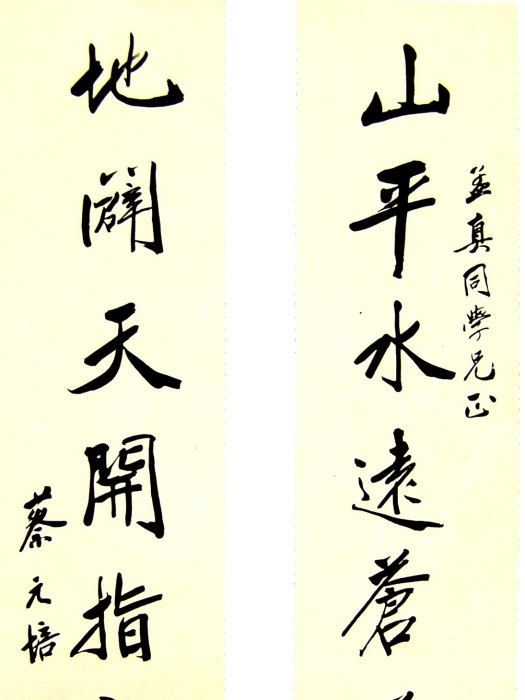 孟真同學兄正
山平水遠蒼
地闢天開指
蔡元培